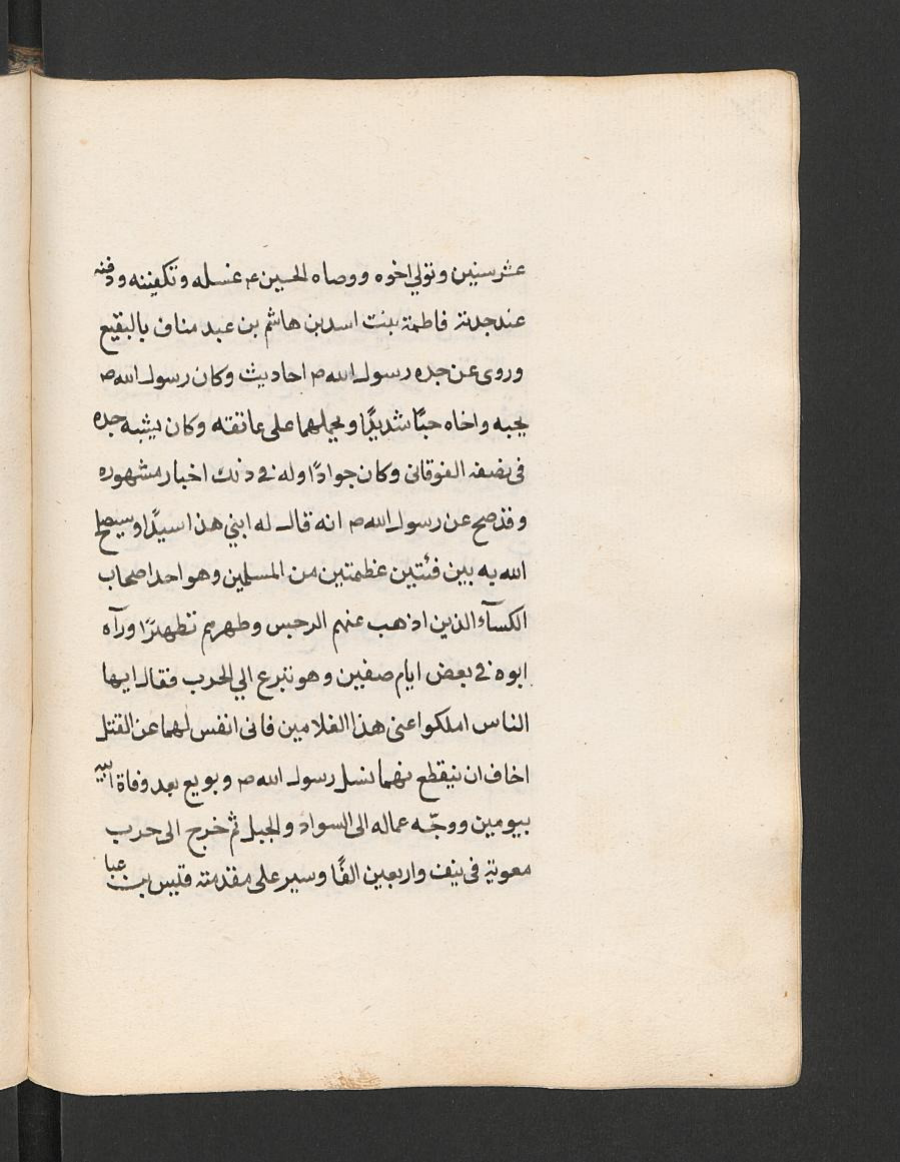 عشر سنين وتولي اخوه ووصاه الحسين عم غسله وتكفينه ودفنه
عند جدته فاطمة بنت اسد بن هاشم بن عبد مناف بالبقيع
وروى عن جده رسول الله ص احاديث وكان رسول الله ص
يحبه واخاه حبًا شديدًا ويحملهما على عاتقه وكان يشبه جده
فى نصفه الفوقانى وكان جوادًا وله فى ذلك اخبار مشهوره
وقد صح عن رسول الله ص انه قال له ابني هذا سيدًا وسيصلح
الله به بين فئتين عظمتين من المسلمين وهو احد اصحاب
الكسآء الذين اذهب عنهم الرجس وطهرهم تطهيرًا ورآه
ابوه فى بعض ايام صفين وهو يتبرع الي الحرب فقال ايها
الناس املكوا عنى هذا الغلامين فانى انفس لهما عن القتل
اخاف ان ينقطع بهما نسل رسول الله ص وبويع بعد وفاة ابيه
بيومين ووجّه عماله الى السواد والجبل ثم خرج الى حرب
معوية فى نيف واربعين الفًا وسير على مقدمته قيس بن عبا